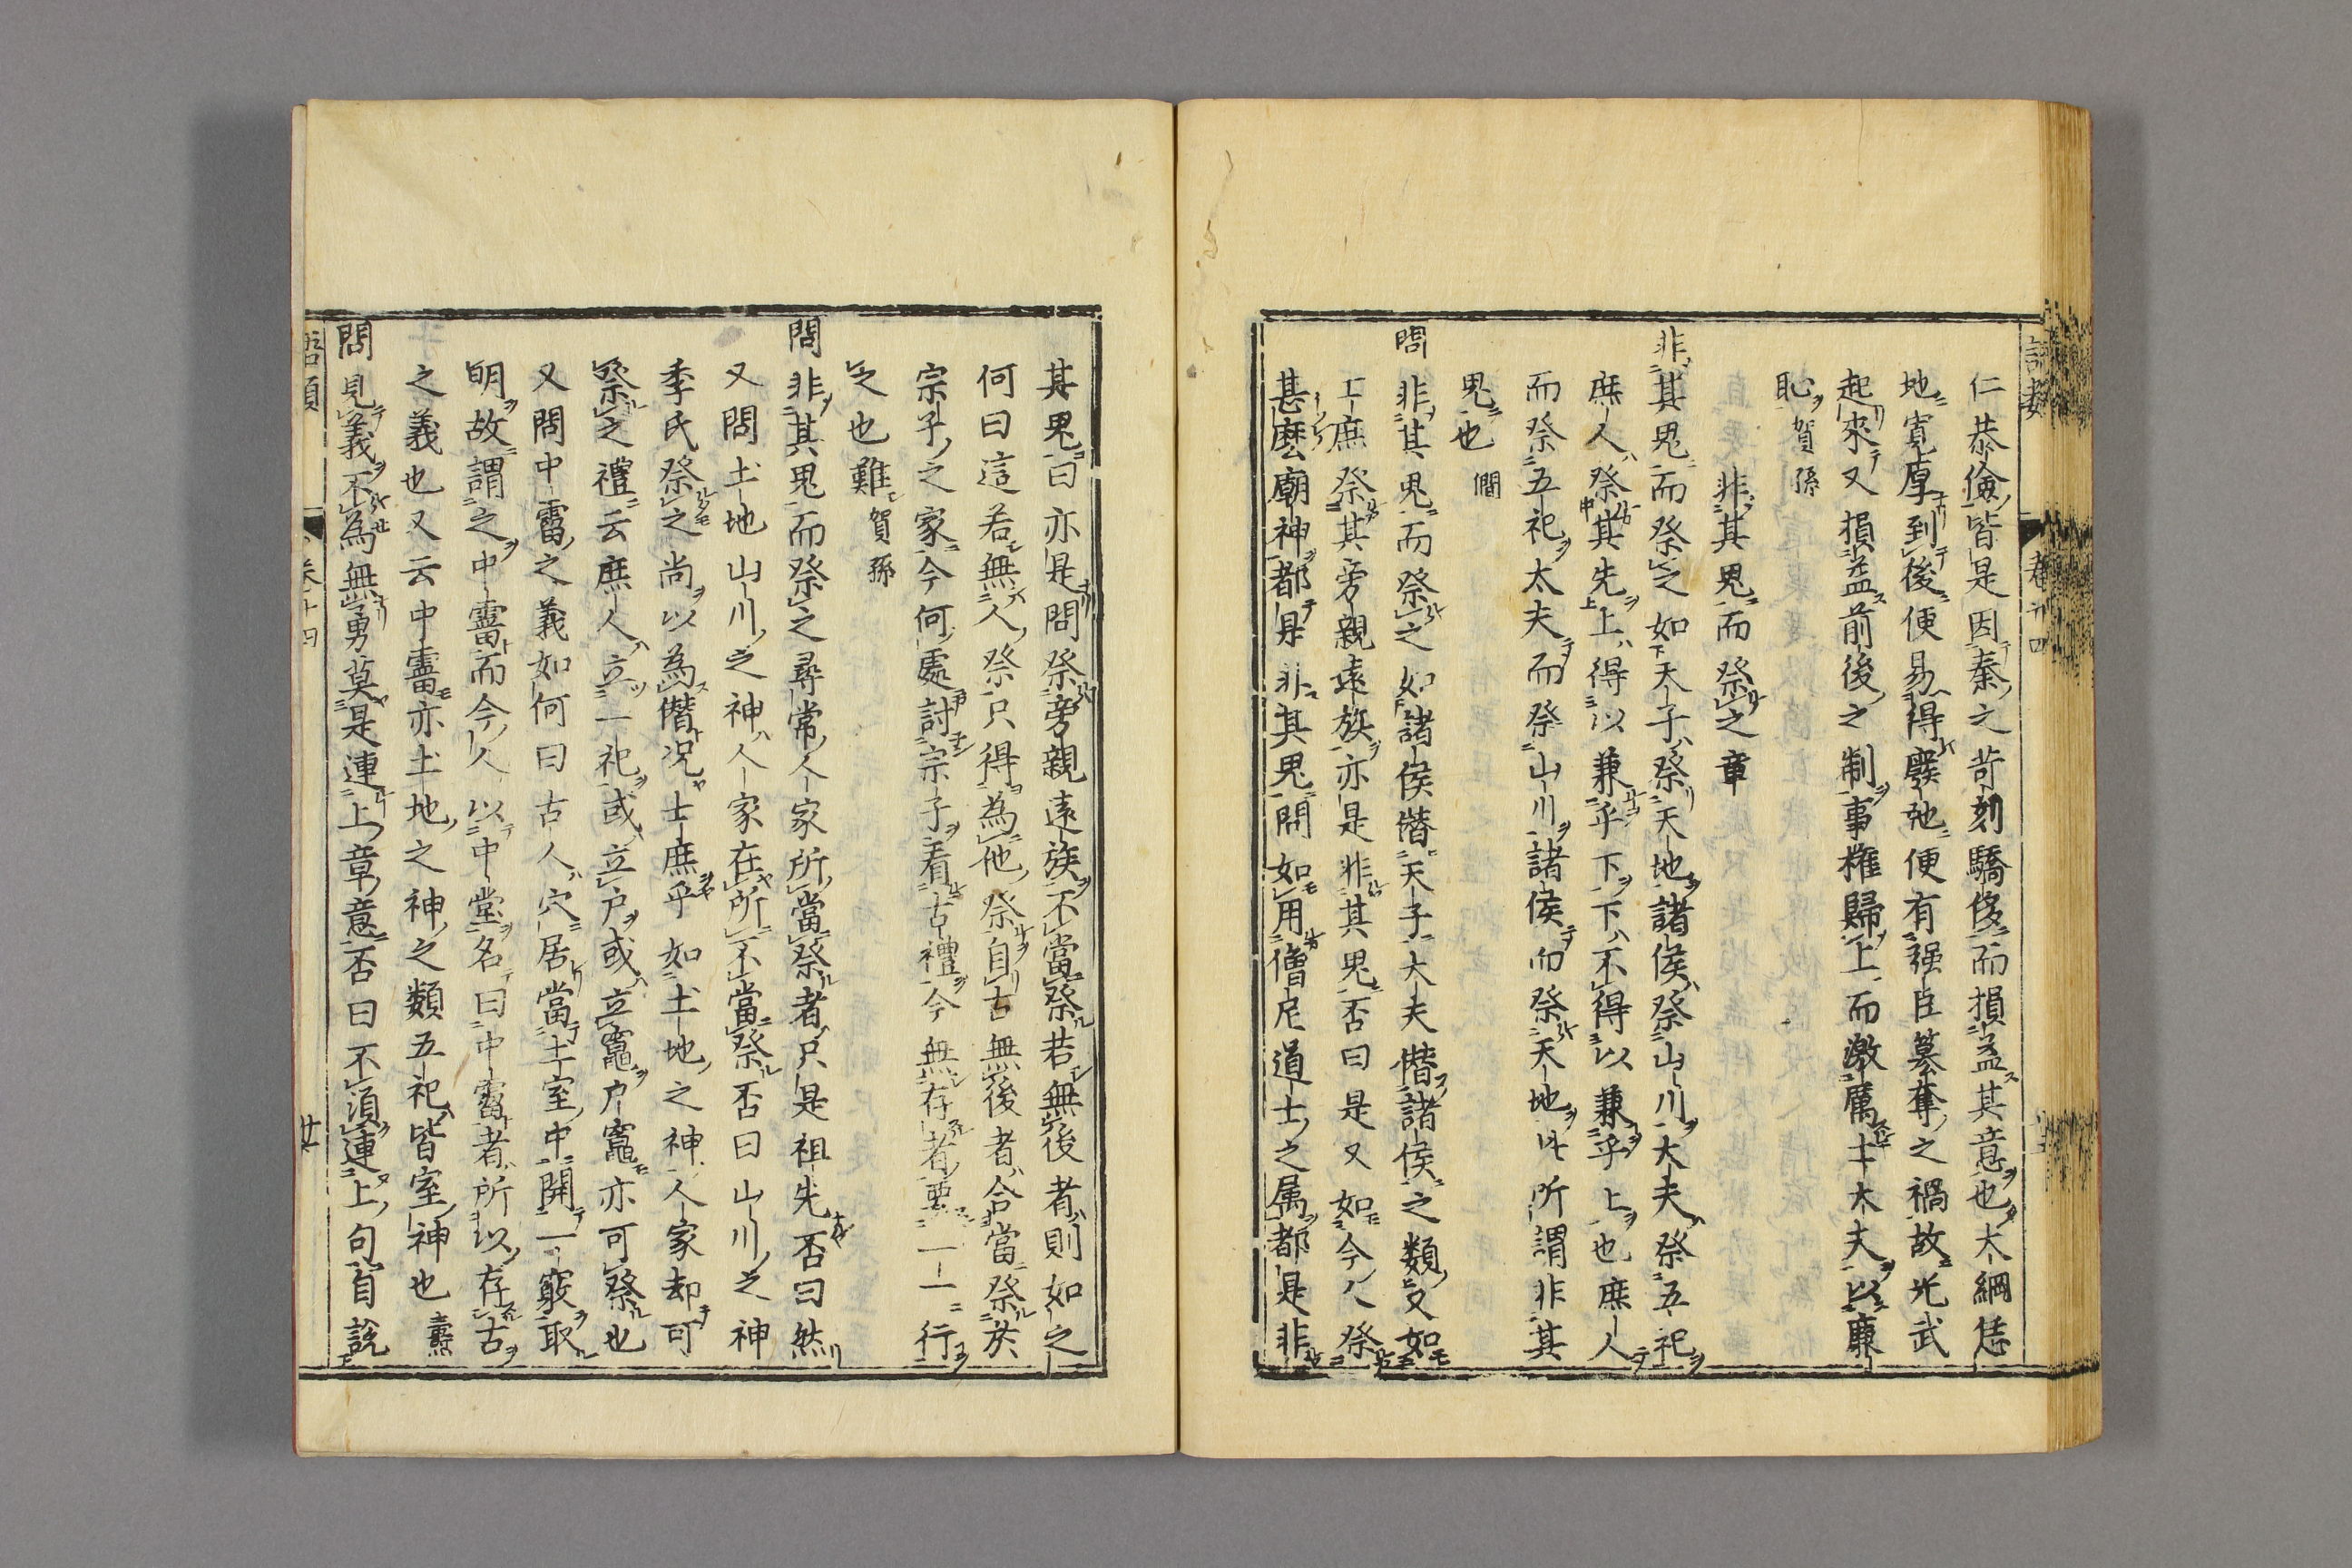 仁恭儉皆是因秦之苛刻驕侈而損益其意也大綱恁
地寛厚到後便易得廢弛便有强臣篡奪之禍故光武
起來又損益前後之制事權歸上而激厲士大夫以廉
恥賀孫
非其鬼而祭之章
非其鬼而祭之如天子祭天地諸侯祭山川大夫祭五祀
庶人祭其先上得以兼乎下下不得以兼乎上也庶人
而祭五祀大夫而祭山川諸侯而祭天地此所謂非其
鬼也 僩
問非其鬼而祭之如諸侯僭天子大夫僭諸侯之類又如
士庶祭其旁親遠族亦是非其鬼否曰是又如今人祭
甚麽廟神都是非其鬼問如用僧尼道士之属都是非
其鬼曰亦是問祭旁親遠族不當祭若無後者則如之
何曰這若無人祭只得為他祭自古無後者合當祭於
宗子之家今何處討宗子看古禮今無存者要一一行
之也難賀孫
問非其鬼而祭之尋常人家所當祭者只是祖先否曰然
又問土地山川之神人家在所不當祭否曰山川之神
季氏祭之尚以為僭况士庶乎如土地之神人家却可
祭之禮云庶人立一祀或立户或立竈户竈亦可祭也
又問中霤之義如何曰古人穴居當土室中開一竅取
明故謂之中霤而今人以中堂名曰中霤者所以存古
之義也又云中霤亦土地之神之類五祀皆室神也 燾
問見義不為無勇莫是連上章意否曰不須連上句自說
語類 卷廿四
語類 卷廿四 廿